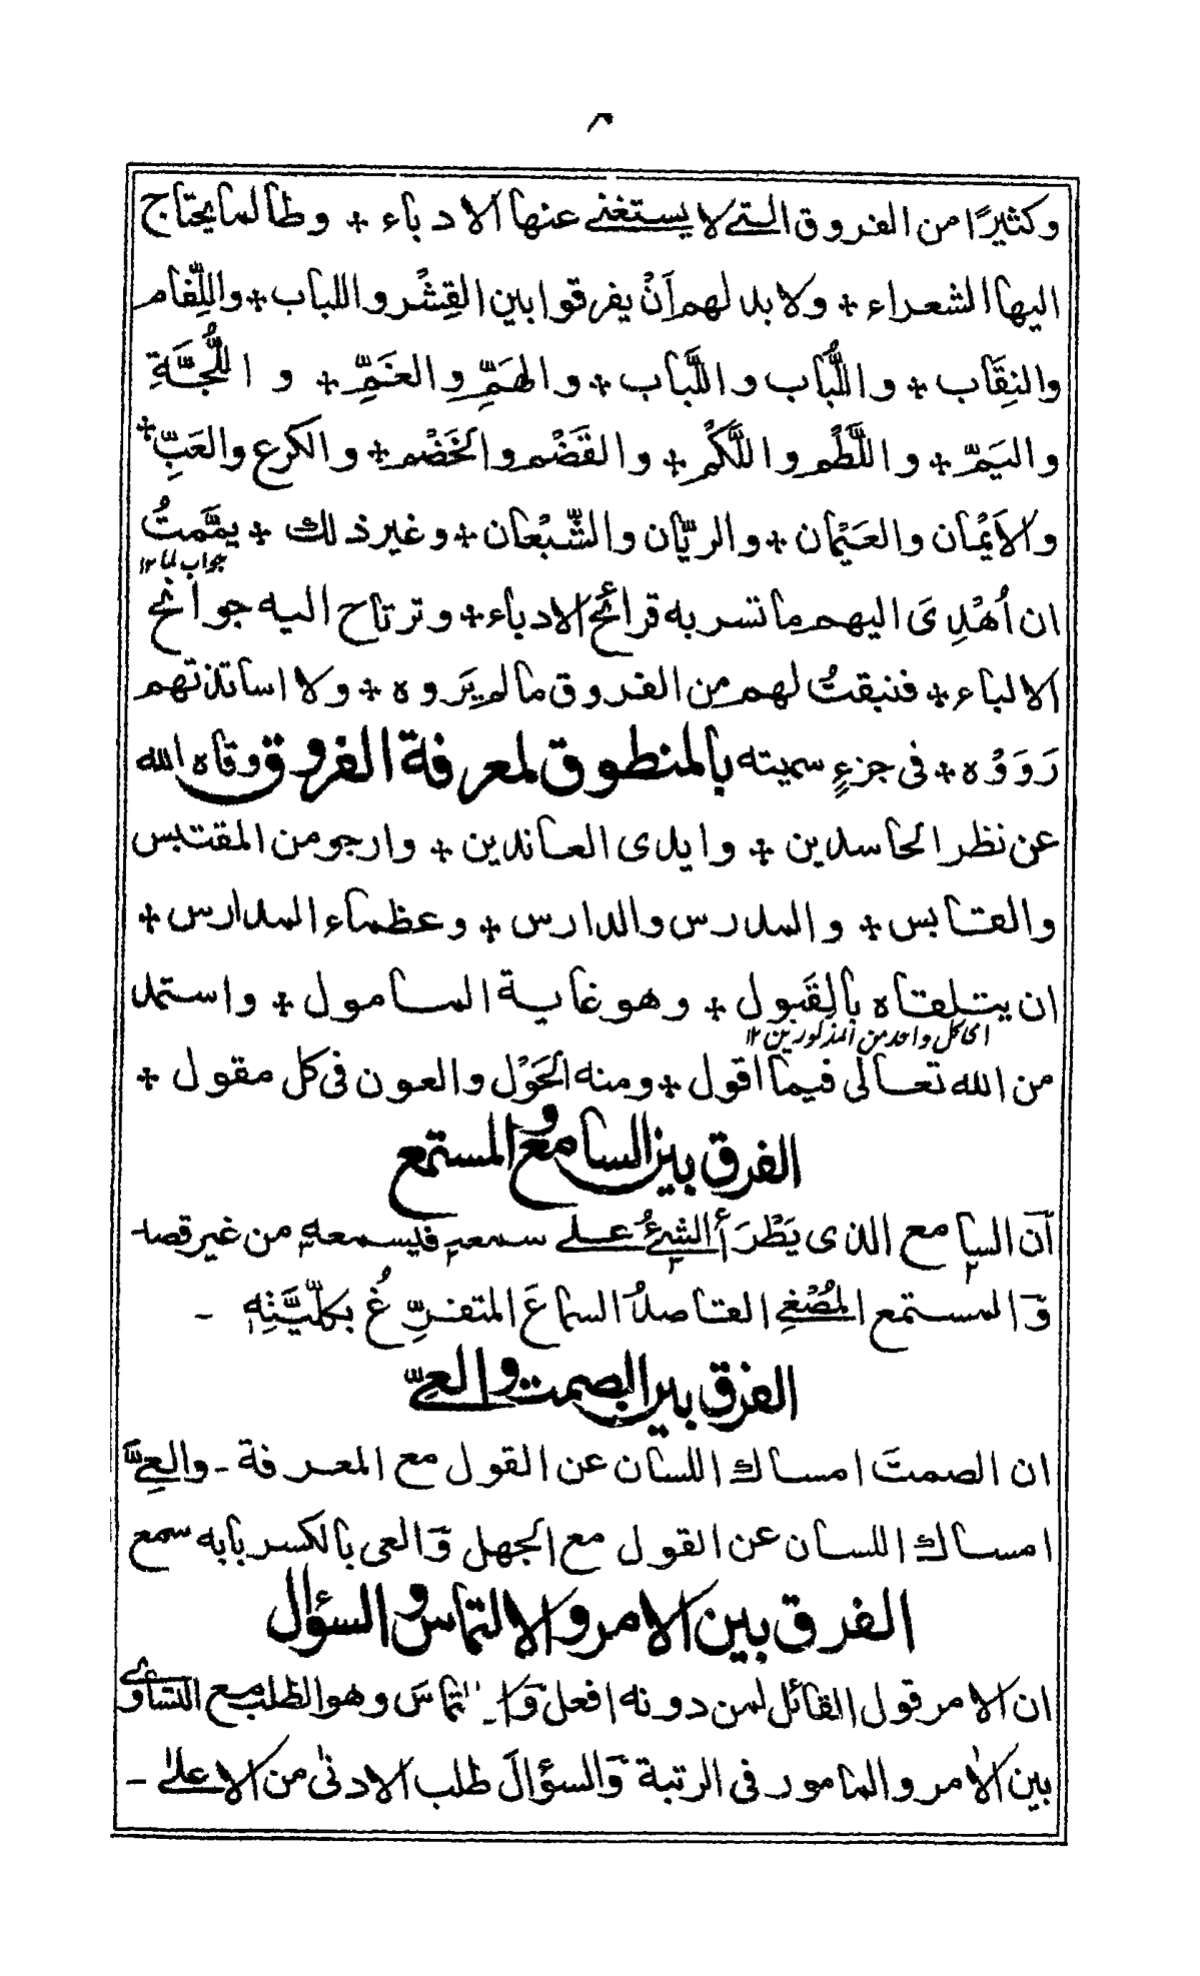 وكثيرًا من الفروق التي لا يستغني عنها الادباء + وطالما يحتاج
اليها الشعراء + ولا بد لهم اَنْ يفرقوا بين القِشْر واللباب + واللِّفام
والنِقَاب + واللُّباب واللَّبَاب + والهَمِّ والغَمِّ + و اللُّجَّةِ
واليَمِّ + واللَّطْم واللَّكْم + والقَضْم والخَضْم + والكرع والعَبِّ +
والاَيْمان والعَيْمان + والريّان والشَّبْعان + وغير ذلك + يمَّمتُ
جواب لما ۱۲
ان اُهْدِىَ اليهم ما تسر به قرائح الادباء + وترتاح اليه جوانح
الالباء + فنبقتُ لهم من الفروق ما لم يَرَوه + ولا اساتذتهم
رَوَوْه + فى جزءٍ سميته بالمنطوق لمعرفة الفروق وقاه الله
عن نظر الحاسدين + وايدى العاندين + وارجو من المقتبس
والقابس + والمدرس والدارس + وعظماء المدارس +
ان يتلقاه بالقَبول + وهو غاية المامول + واستمد
اى كل واحد من المذكورين ۱۲
من الله تعالى فيما اقول + ومنه الحَوْل والعون فى كل مقول +
الفرق بين السامع والمستمع
اَن السامع الذى يَطْرَأُ الشئُ على سمعه فيسمعه من غير قصد
وَ المستمع المُصْغِى القاصدُ السماعَ المتفرِّغُ بكلّيَّتِه -
الفرق بين الصمت والعىّ
ان الصمتَ امساك اللسان عن القول مع المعرفة - والعِىَّ
امساك اللسان عن القول مع الجهل وَالعى بالكسر بابه سمع
الفرق بين الامر والالتماس والسؤال
ان الامر قول القائل لمن دونه افعل وَالالتماسَ وهو الطلب مع التساوى
بين الاٰمر والمامور فى الرتبة وَالسؤالَ طلب الادنى من الاعلىٰ -